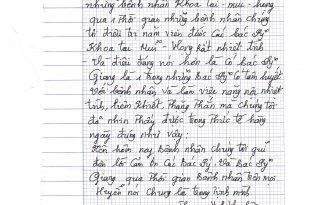 những bệnh nhân Khoa tai - mũi - họng
qua thời gian những bệnh nhân chúng
tôi điều trị nằm viện được các bác sỹ
Khoa tai Mũi - Họng rất nhiệt tình
Và điều đáng nói hơn là có bác sỹ
Giang là 1 trong những bác sỹ có tâm huyết
với bệnh nhân và làm việc năng nổ, nhiệt
tình, liêm khiết thẳng thắn mà chúng tôi
đã nhìn thấy được trong thực tế hàng
ngày đúng như vậy.
hôm nay bệnh nhân chúng tôi
lời cảm ơn các bác sỹ và bác sỹ
Giang qua thời gian bệnh nhân
nói chung là trong